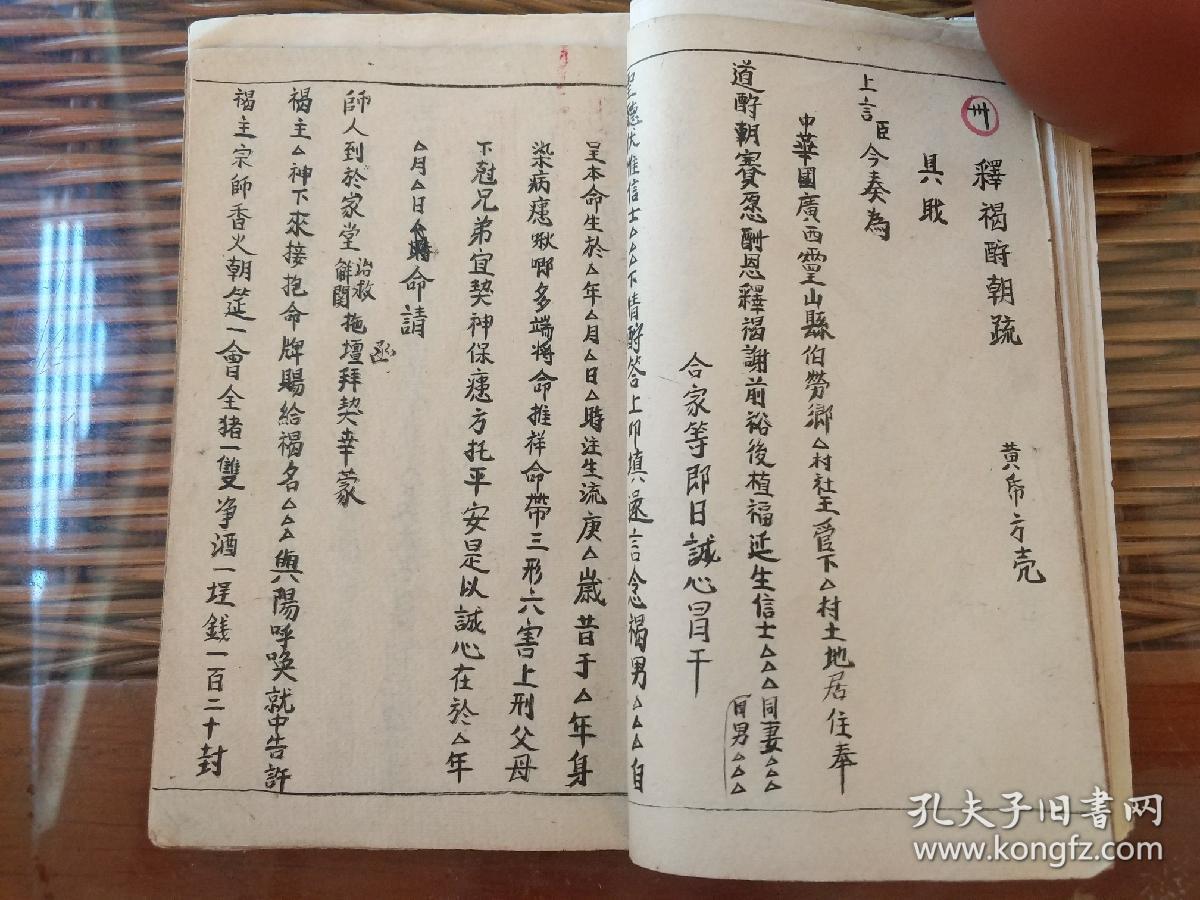 卅
釋褐酧朝疏
黄帋方壳
具戝
上言臣今奏為
中華國廣西靈山縣伯勞鄉△村社王管下△村土地居住奉
道酧朝賽恩酧恩釋褐謝前裕後植福延生信士△△△同妻△△△
同男△△△
合家等即日誠心冒干
聖聽伏惟信士△△△下情酧答上叩填還言念褐男△△△自
呈本命生於△年△月△日△時注生流庚△歲昔于△年身
染病瘧啾唧多端將命推祥命帶三形六害上刑父母
下尅兄弟宜契神保瘧方托平安是以誠心在於△年
△月△日將命請
師人到於家堂治救解関拖壇拜契幸蒙
褐主△神下來接抱命牌賜給褐名△△△與陽呼喚就中告許
褐主宗師香火朝筵一會全猪一雙净酒一埕錢一百二十封
孔夫子旧书网
www.kongfz.com